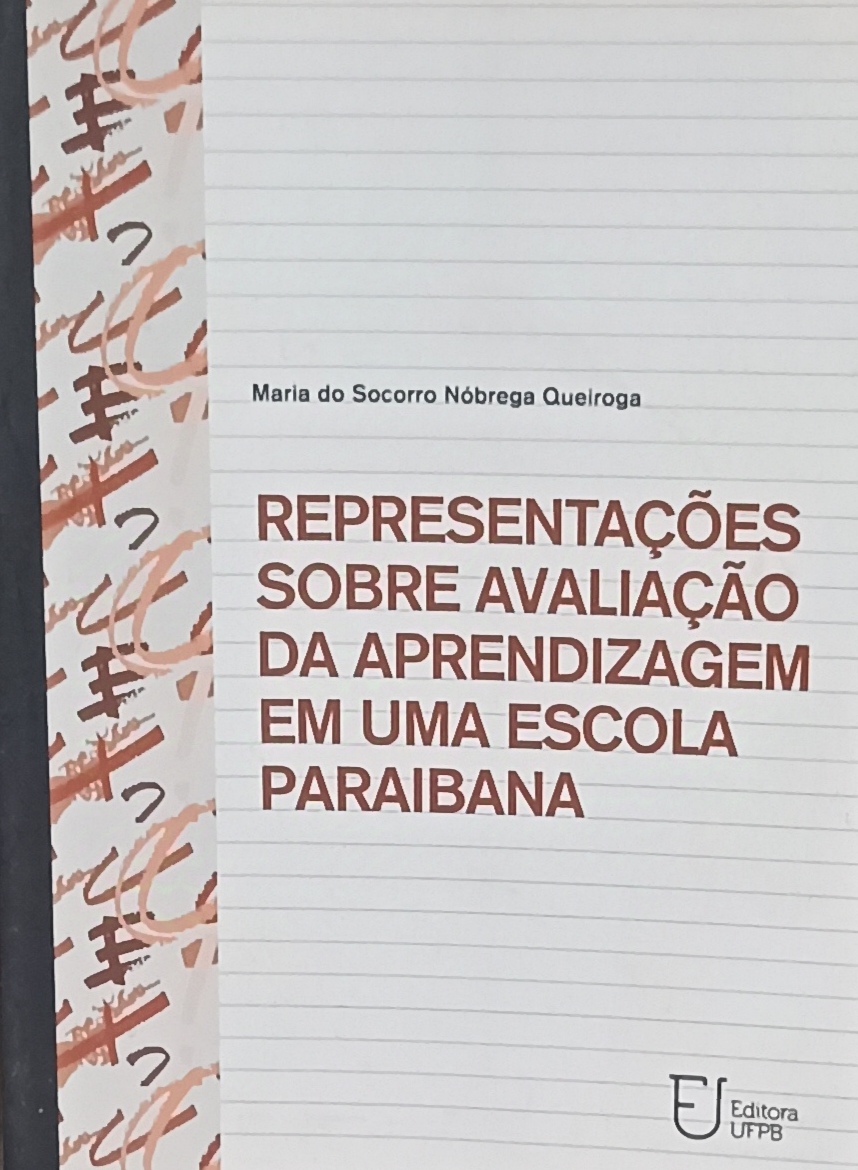 Maria do Socorro Nóbrega Queiroga
REPRESENTAÇÕES
SOBRE AVALIAÇÃO
DA APRENDIZAGEM
EM UMA ESCOLA
PARAIBANA
Editora
UFPB